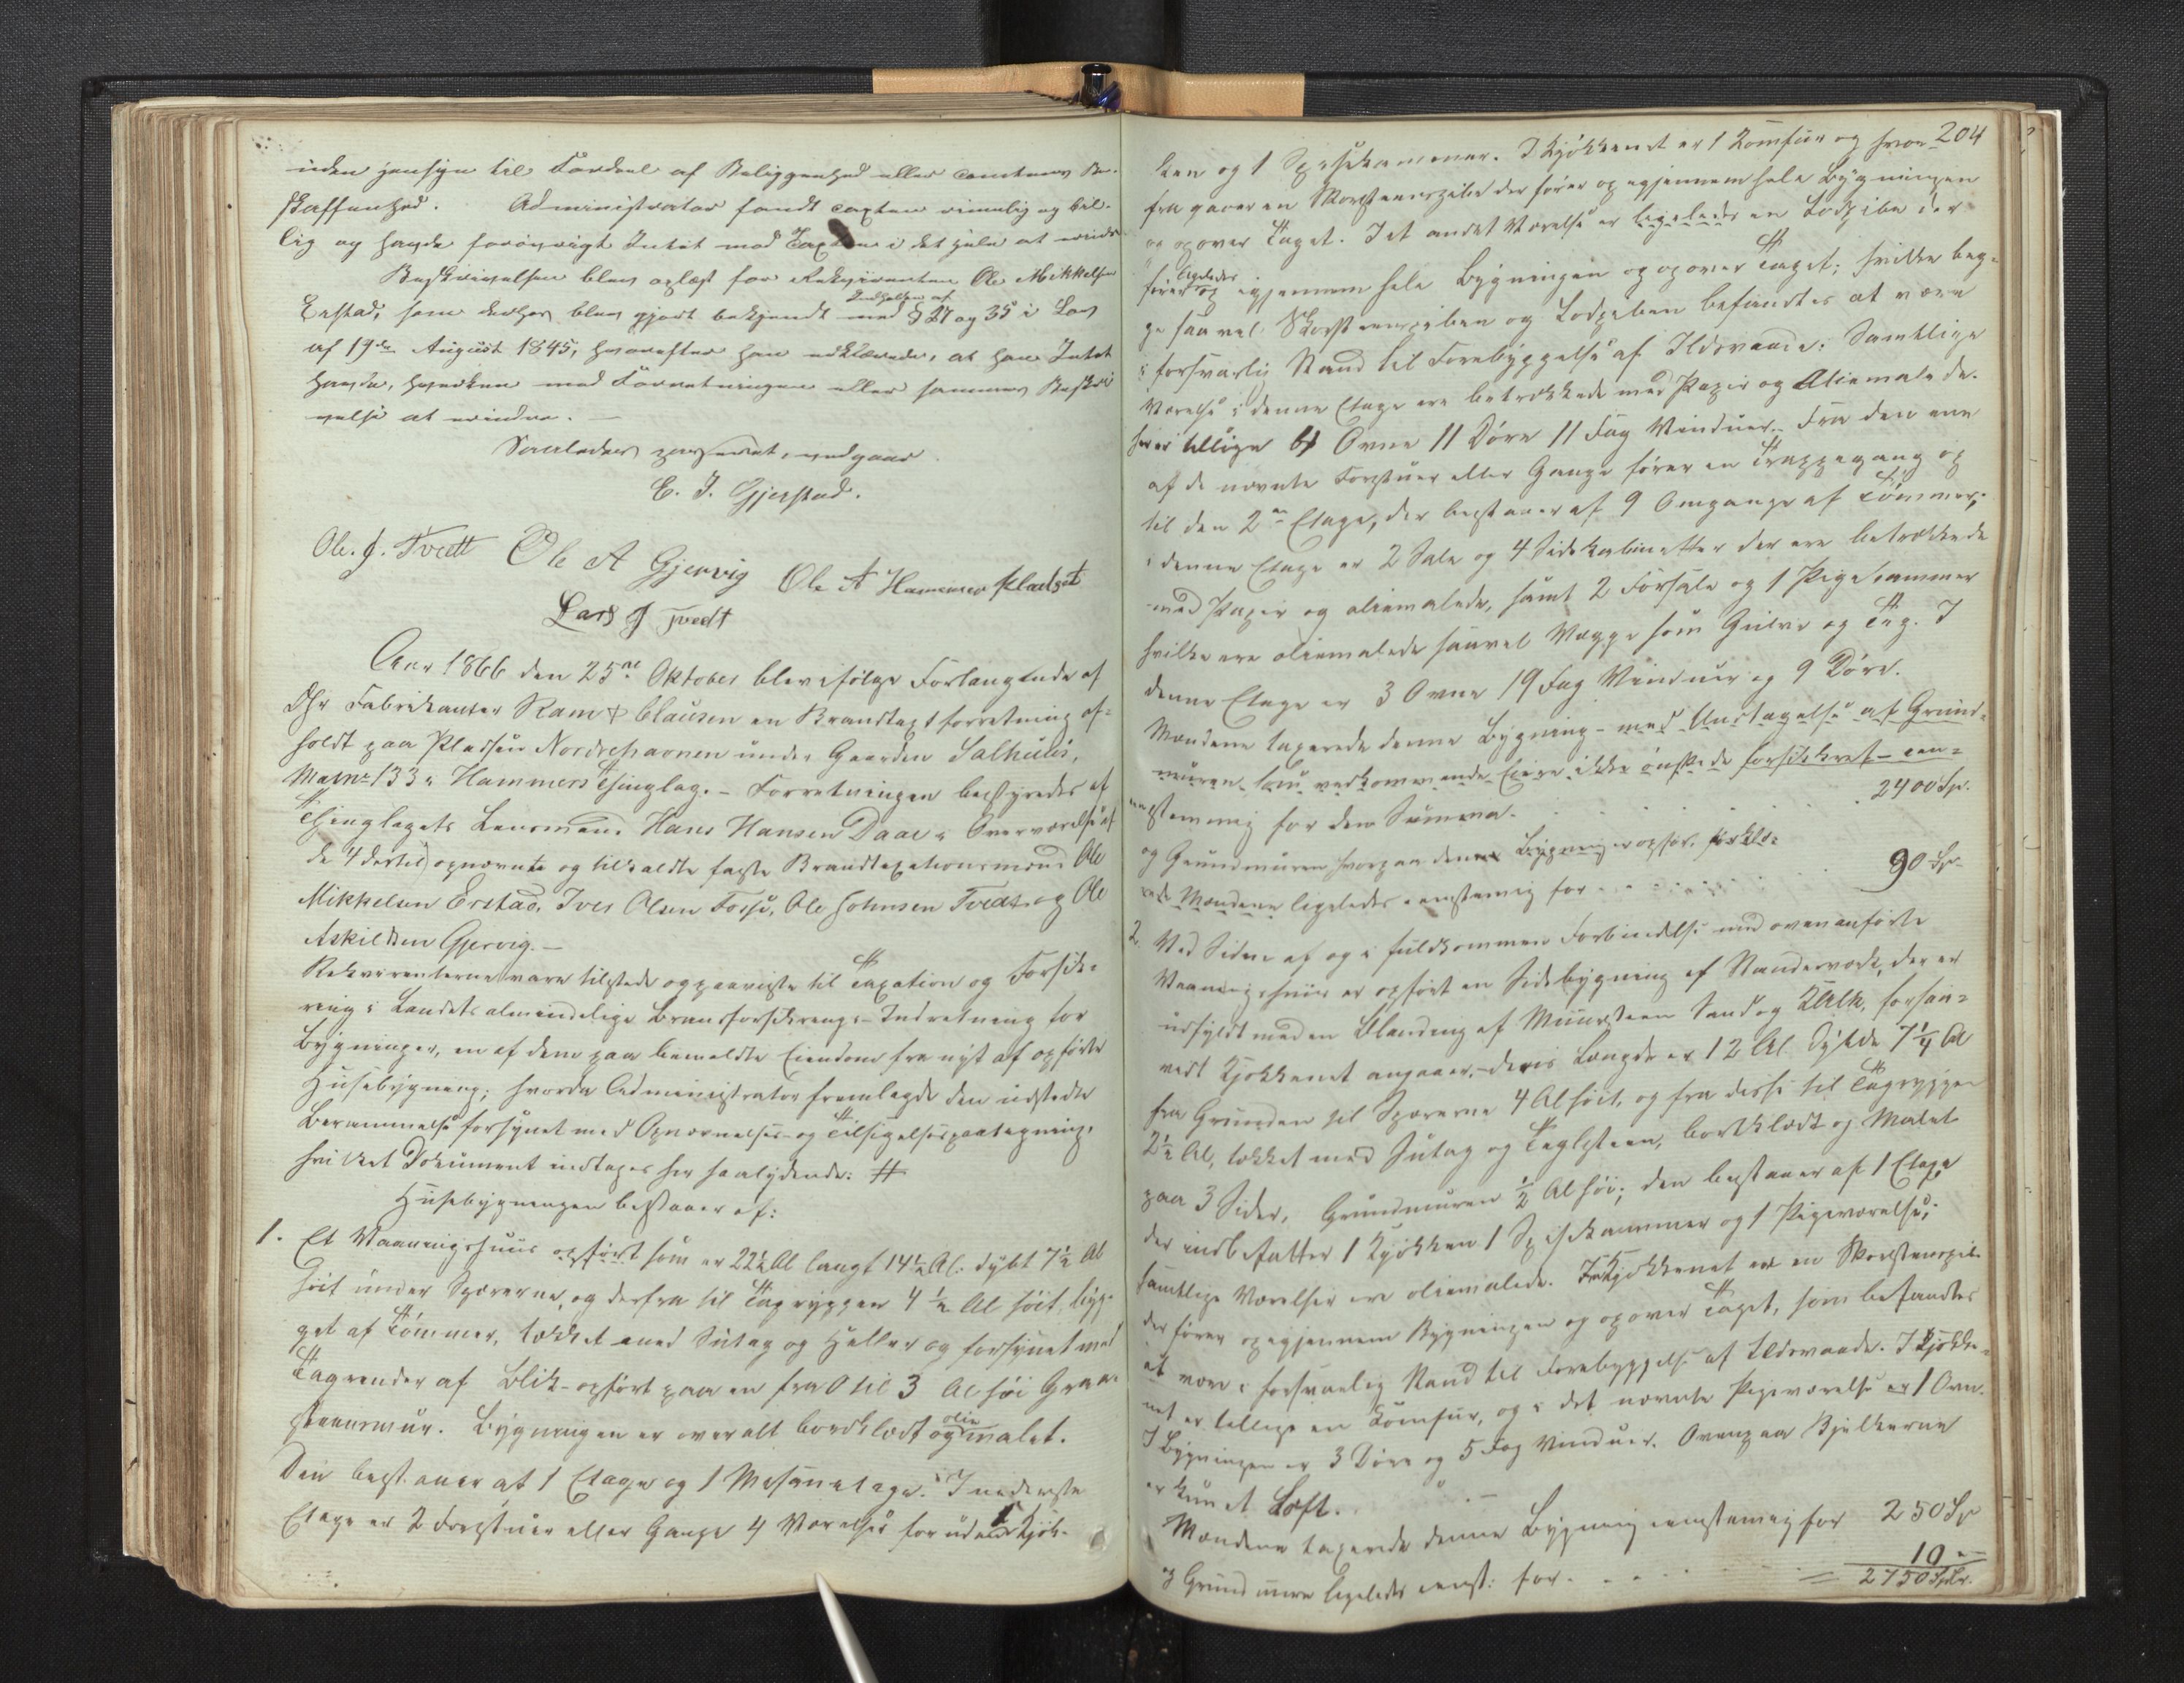 uden hensyn til Fordeel af Beliggenhed eller Tomtens Be-
skaffenhed. Administrator fandt Taxten rimelig og bil-
lig og havde forøvrigt Intet mod Taxten i det hele at erindre
Beskrivelsen blev oplæst for Rekvirenten Ole Mikkelsen
Erstad, som derhos blev gjort bekjendt med Indholdet af § 27 og 35 i Lov
af 19de August 1845, hvorefter han erklærede, at han Intet
havde, hverken med Forretningen eller sammes Beskri
velse at erindre. —
Saaledes passeret, vedgaar
E. J. Gjerstad.
Ole. J. Tvedt Ole A Gjervig Ole A Hammersklædset
Lars J Tvedt
Aar 1866 den 25de Oktober blev ifølge Forlangende af
Dhr Fabrikanter Ram & Clausen en Brandtaxtforretning af-
holdt paa Pladsen Nordrehavnen under Gaarden Salhuus,
Matnr 133 i Hammers Thinglag. – Forretningen bestyredes af
Thinglagets Lensmand Hans Hansen Daae i Overværelse af
de 4 dertil opnævnte og tilkaldte faste Brandtaxationsmænd Ole
Mikkelsen Erstad, Iver Olsen Fosse, Ole Johnsen Tvedt og Ole
Askildsen Gjervig. –
Rekvirenterne vare tilstede og paaviste til Taxation og Forsik-
ring i Landets almindelige Brandforsikrings-Indretning for
Bygninger, en af dem paa bemeldte Eiendom fra nyt af opførte
Husebygning; hvorda Administrator fremlagde den udstedte
Berammelse forsynet med Opnævnelses- og Tilsigelsespaategning,
hvilket Dokument indtages her saalydende: #
Husebygningen bestaaer af:
1. Et Vaaningshuus opført som er 22½ Al langt 14½ Al. dybt 7½ Al
høit under Sperrerne, og derfra til Tagryggen 4½ Al høit, byg-
get af Tømmer, tækket med Sutag og Heller og forsynet med
Tagrender af Blik – opført paa en fra 0 til 3 Al høi Graa-
steensmuur. Bygningen er overalt bordklædt og oliemalet.
Den bestaaer af 1 Etage og 1 Mesanetage. I nederste
Etage er 2 Forstuer eller Gange 4 Værelser foruden 1 Kjøk-
204
ken og 1 Spisekammer. I Kjøkkenet er 1 Komfur og hvor-
fra gaaer en Skorsteenspibe der fører op igjennem hele Bygningen
og op over Taget. I et andet Værelse er ligeledes en Lodpibe der
fører ligeledes op igjennem hele Bygningen og op over Taget; hvilke beg-
ge saavel Skorsteenspiben og Lodpiben befandtes at være
i forsvarlig Stand til Forebyggelse af Ildsvaade. Samtlige
Værelser i denne Etage ere betrækkede med Papir og Oliemalede.
her er tillige 4 Ovne 11 Døre 11 Fag Vinduer. Fra den ene
af de nævnte Forstuer eller Gange fører en Trappegang op
til den 2en Etage, der bestaaer af 9 Omgange af Tømmer;
i denne Etage er 2 Sale og 4 Sidekabinetter der ere betrækkede
med Papir og oliemalede, samt 2 Forsale og 1 Pigekammer
hvilke ere oliemalede saavel Vægge som Gulve og Tag. I
denne Etage er 3 Ovne 19 Fag Vinduer og 9 Døre.
Mændene taxerede denne Bygning – med Undtagelse af Grund-
muren som vedkommende Eiere ikke ønskede forsikret – een-
stemmig for den Summa . . . . . . 2400 Sp.
og Grundmuren hvorpaa denne Bygning er opført, forkla-
rede Mændene ligeledes eenstemmig for . . . . . . 90 Sp.
2. Ved Siden af og i fuldkommen Forbindelse med ovenanførte
Vaaningshuus er opført en Sidebygning af Standerværk, der er
udfyldt med en Blanding af Muursteen Sand og Kalk, forsaa-
vidt Kjøkkenet angaaer, – dens Længde er 12 Al Dybde 7¼ Al
fra Grunden til Sperrerne 4 Al høit, og fra disse til Tagryggen
2½ Al, tækket med Sutag og Teglsteen, bordklædt og Malet
paa 3 Sider, Grundmuren ½ Al høi; den bestaaer af 1 Etage
der indbefatter 1 Kjøkken 1 Spisekammer og 1 Pigeværelse;
samtlige Værelser ere oliemalede. I Kjøkkenet er en Skorsteenspibe
der fører op igjennem Bygningen og op over Taget, som befandtes
at være i forsvarlig Stand til Forebyggelse af Ildsvaade. I Kjøkke-
net er tillige en Komfur, og i det nævnte Pigeværelse er 1 Ovn.
I Bygningen er 3 Døre og 5 Fag Vinduer. Ovenpaa Bjelkerne
er kun et Loft.
Mændene taxerede denne Bygning eenstemmig for 250 Sp
og Grundmuren ligeledes eenst: for . . . . . 10 "
= 2750 Spdlr.